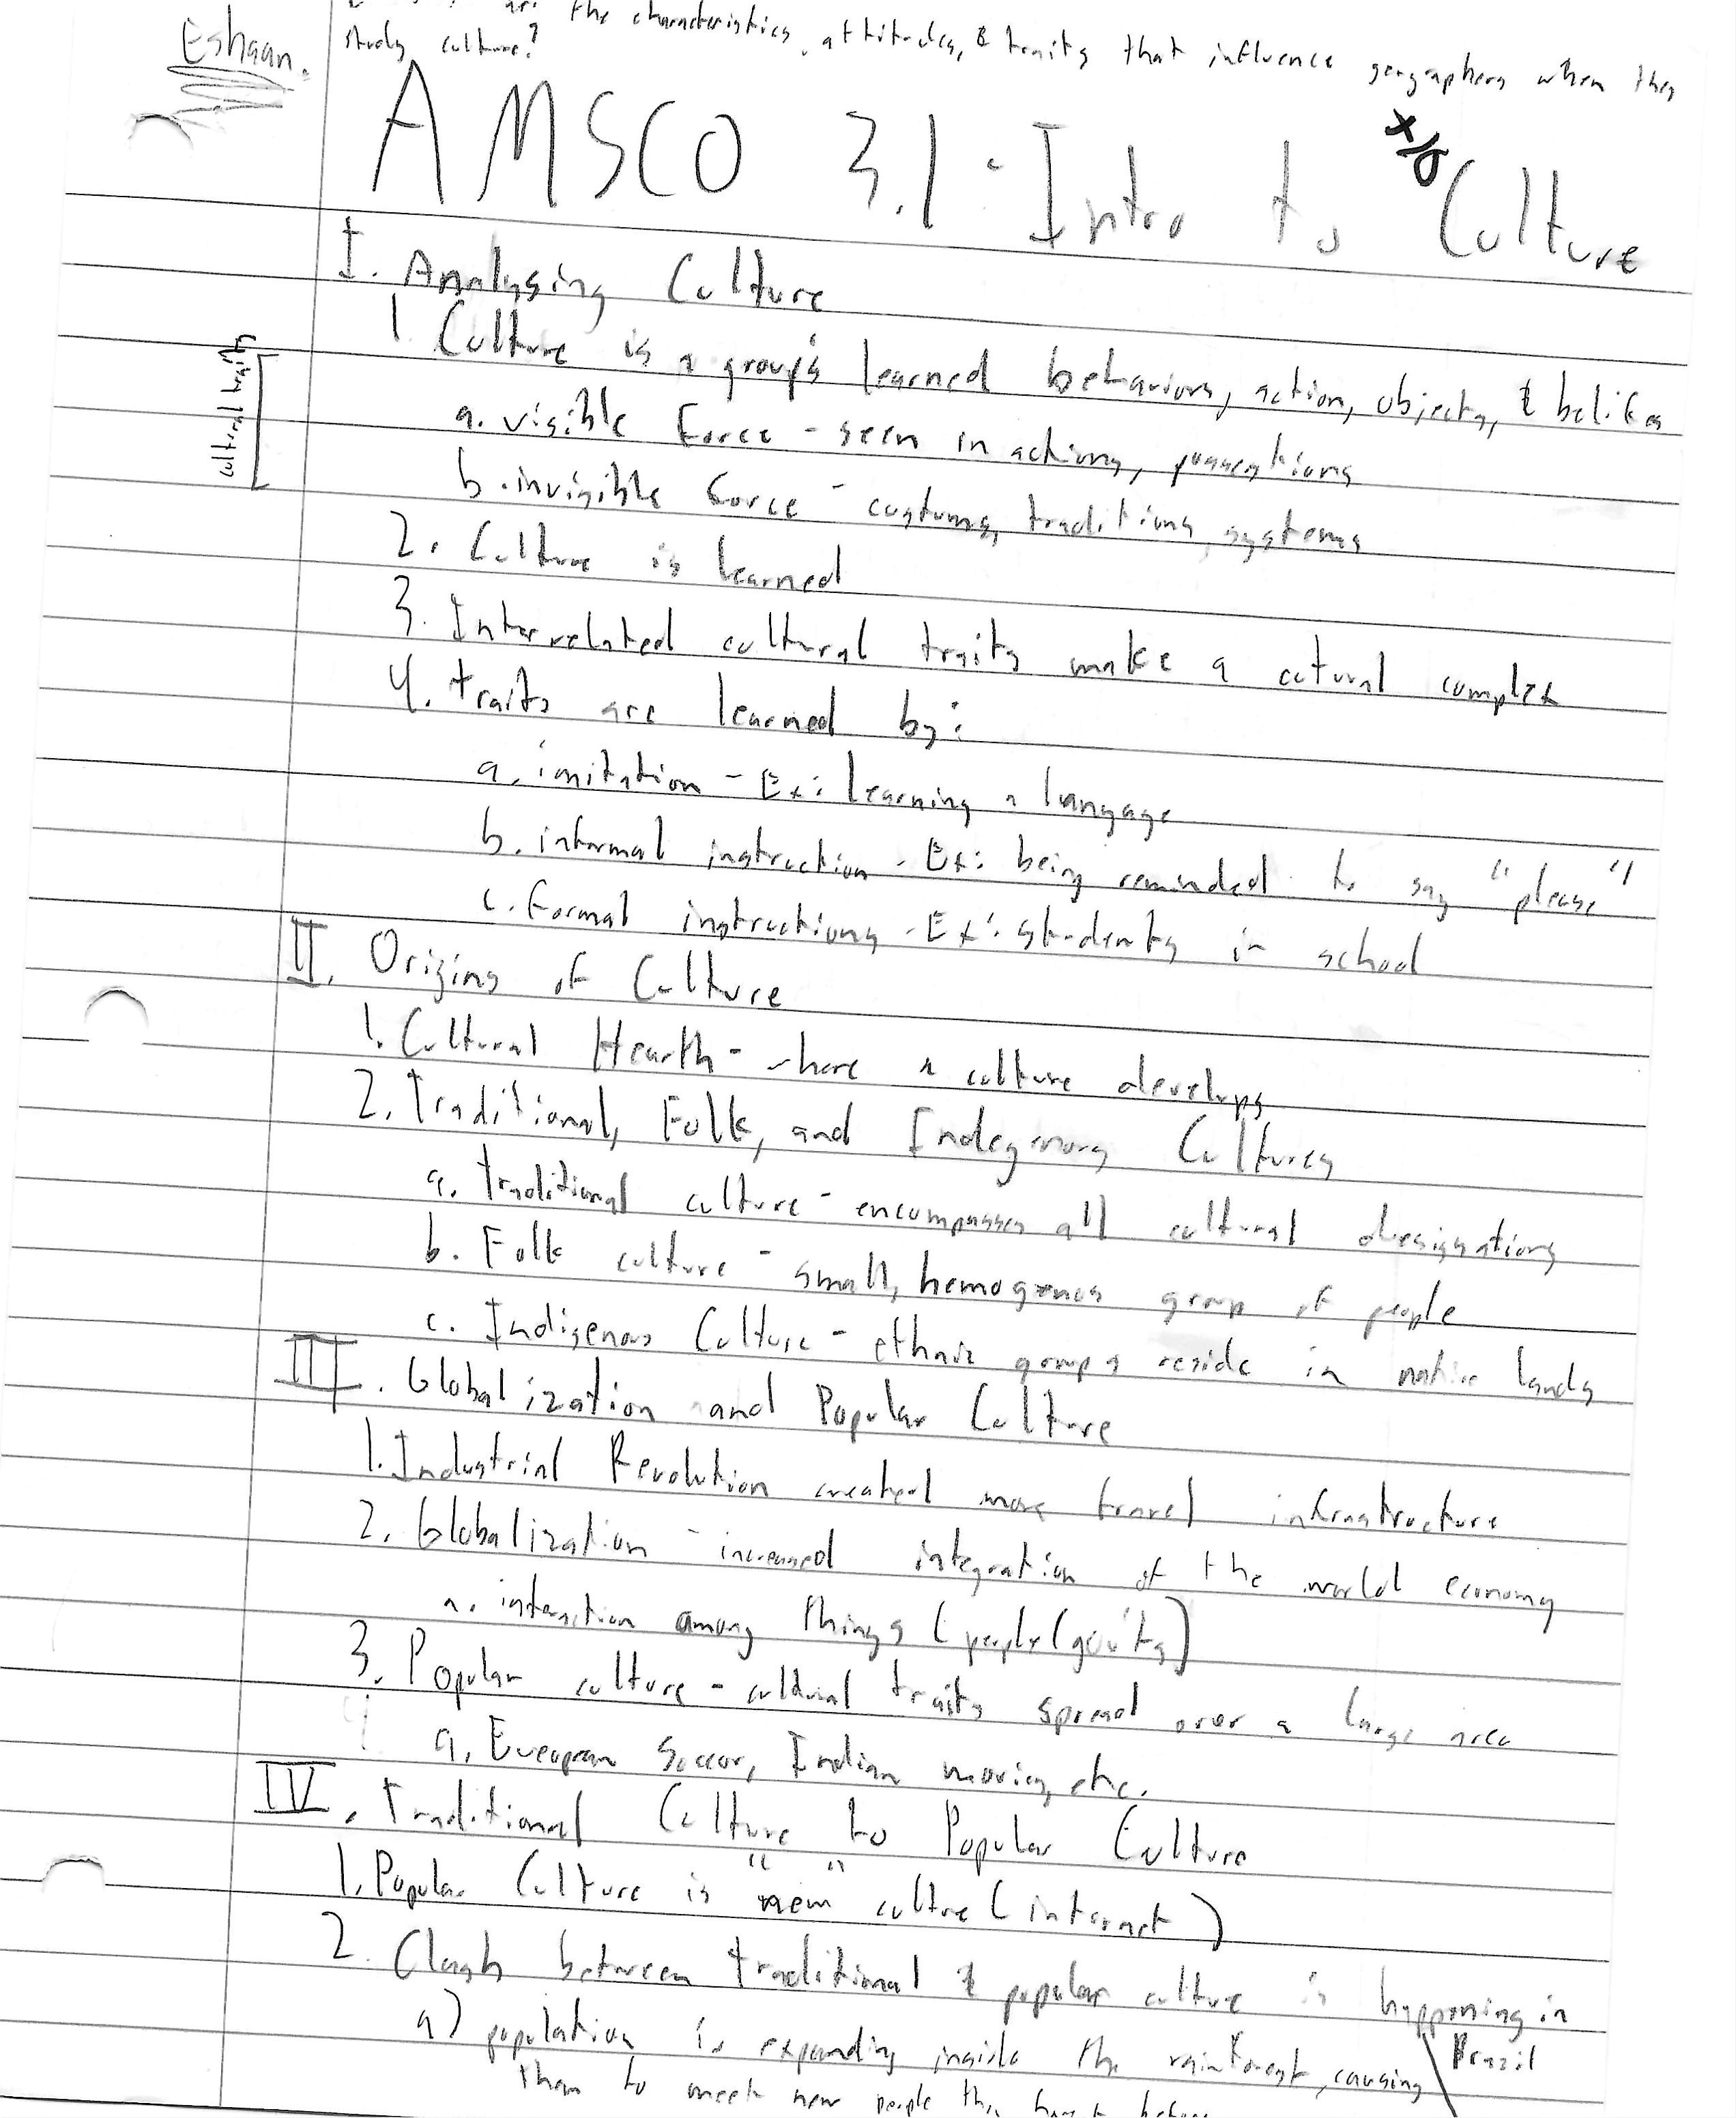 are the characteristics, attitudes, & traits that influence geographers when they
Eshaan.
study culture?
AMSCO 3.1 - Intro to Culture
I. Analysing Culture
1. Culture is a group's learned behaviors, action, objects, & beliefs
cultural traits
a. visible force - seen in actions, possestions
b. invisible force - customs, traditions, systems
2. Culture is learned
3. Interrelated cultural traits make a cutural complex
4. traits are learned by:
a. imitation - Ex: learning a langage
b. informal instruction - Ex: being reminded to say "please"
c. formal instructions - Ex: students in school
II. Origins of Culture
1. Cultural Hearth - where a culture develops
2. Traditional, Folk, and Indegenous Cultures
a. traditional culture - encompasses all cultural designations
b. Folk culture - small, hemogenus group of people
c. Indigenous Culture - ethnic groups reside in native lands
III. Globalization and Popular Culture
1. Industrial Revolution created more travel infrastructure
2. Globalization - increased integration of the world economy
a. interaction among things (people(gov'ts)
3. Popular culture - cultural traits spread over a large area
a. European Soccer, Indian movies, etc.
IV. Traditional Culture to Popular Culture
1. Popular Culture is "new" cultre (internet)
2. Clash between traditional & popular culture is happening in
Brazil
a) population is expanding inside the rainforest, causing
them to meet new people they haven't before